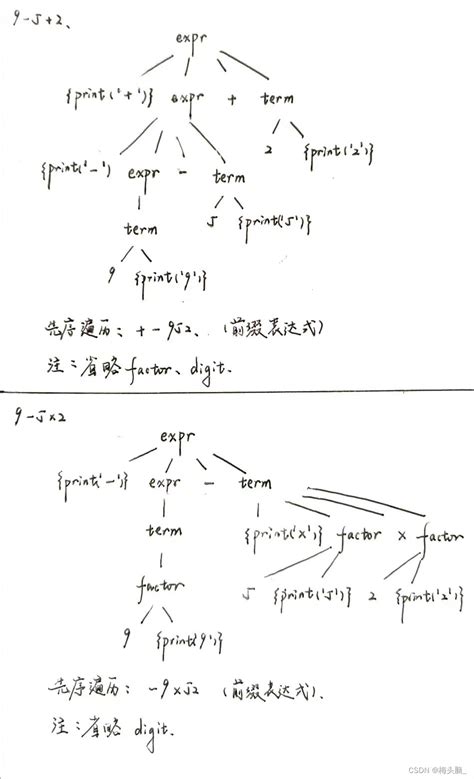 9-5+2、
expr
{print('+')} expr + term
2 {print('2')}
{print('-')} expr - term
term 5 {print('5')}
9 {print('9')}
先序遍历：+-952、(前缀表达式)
注：省略factor、digit.
9-5×2
expr
{print('-')} expr - term
term {print('×')} factor × factor
factor 5 {print('5')} 2 {print('2')}
9 {print('9')}
先序遍历：-9×52 (前缀表达式).
注：省略 digit.
CSDN @梅头脑_